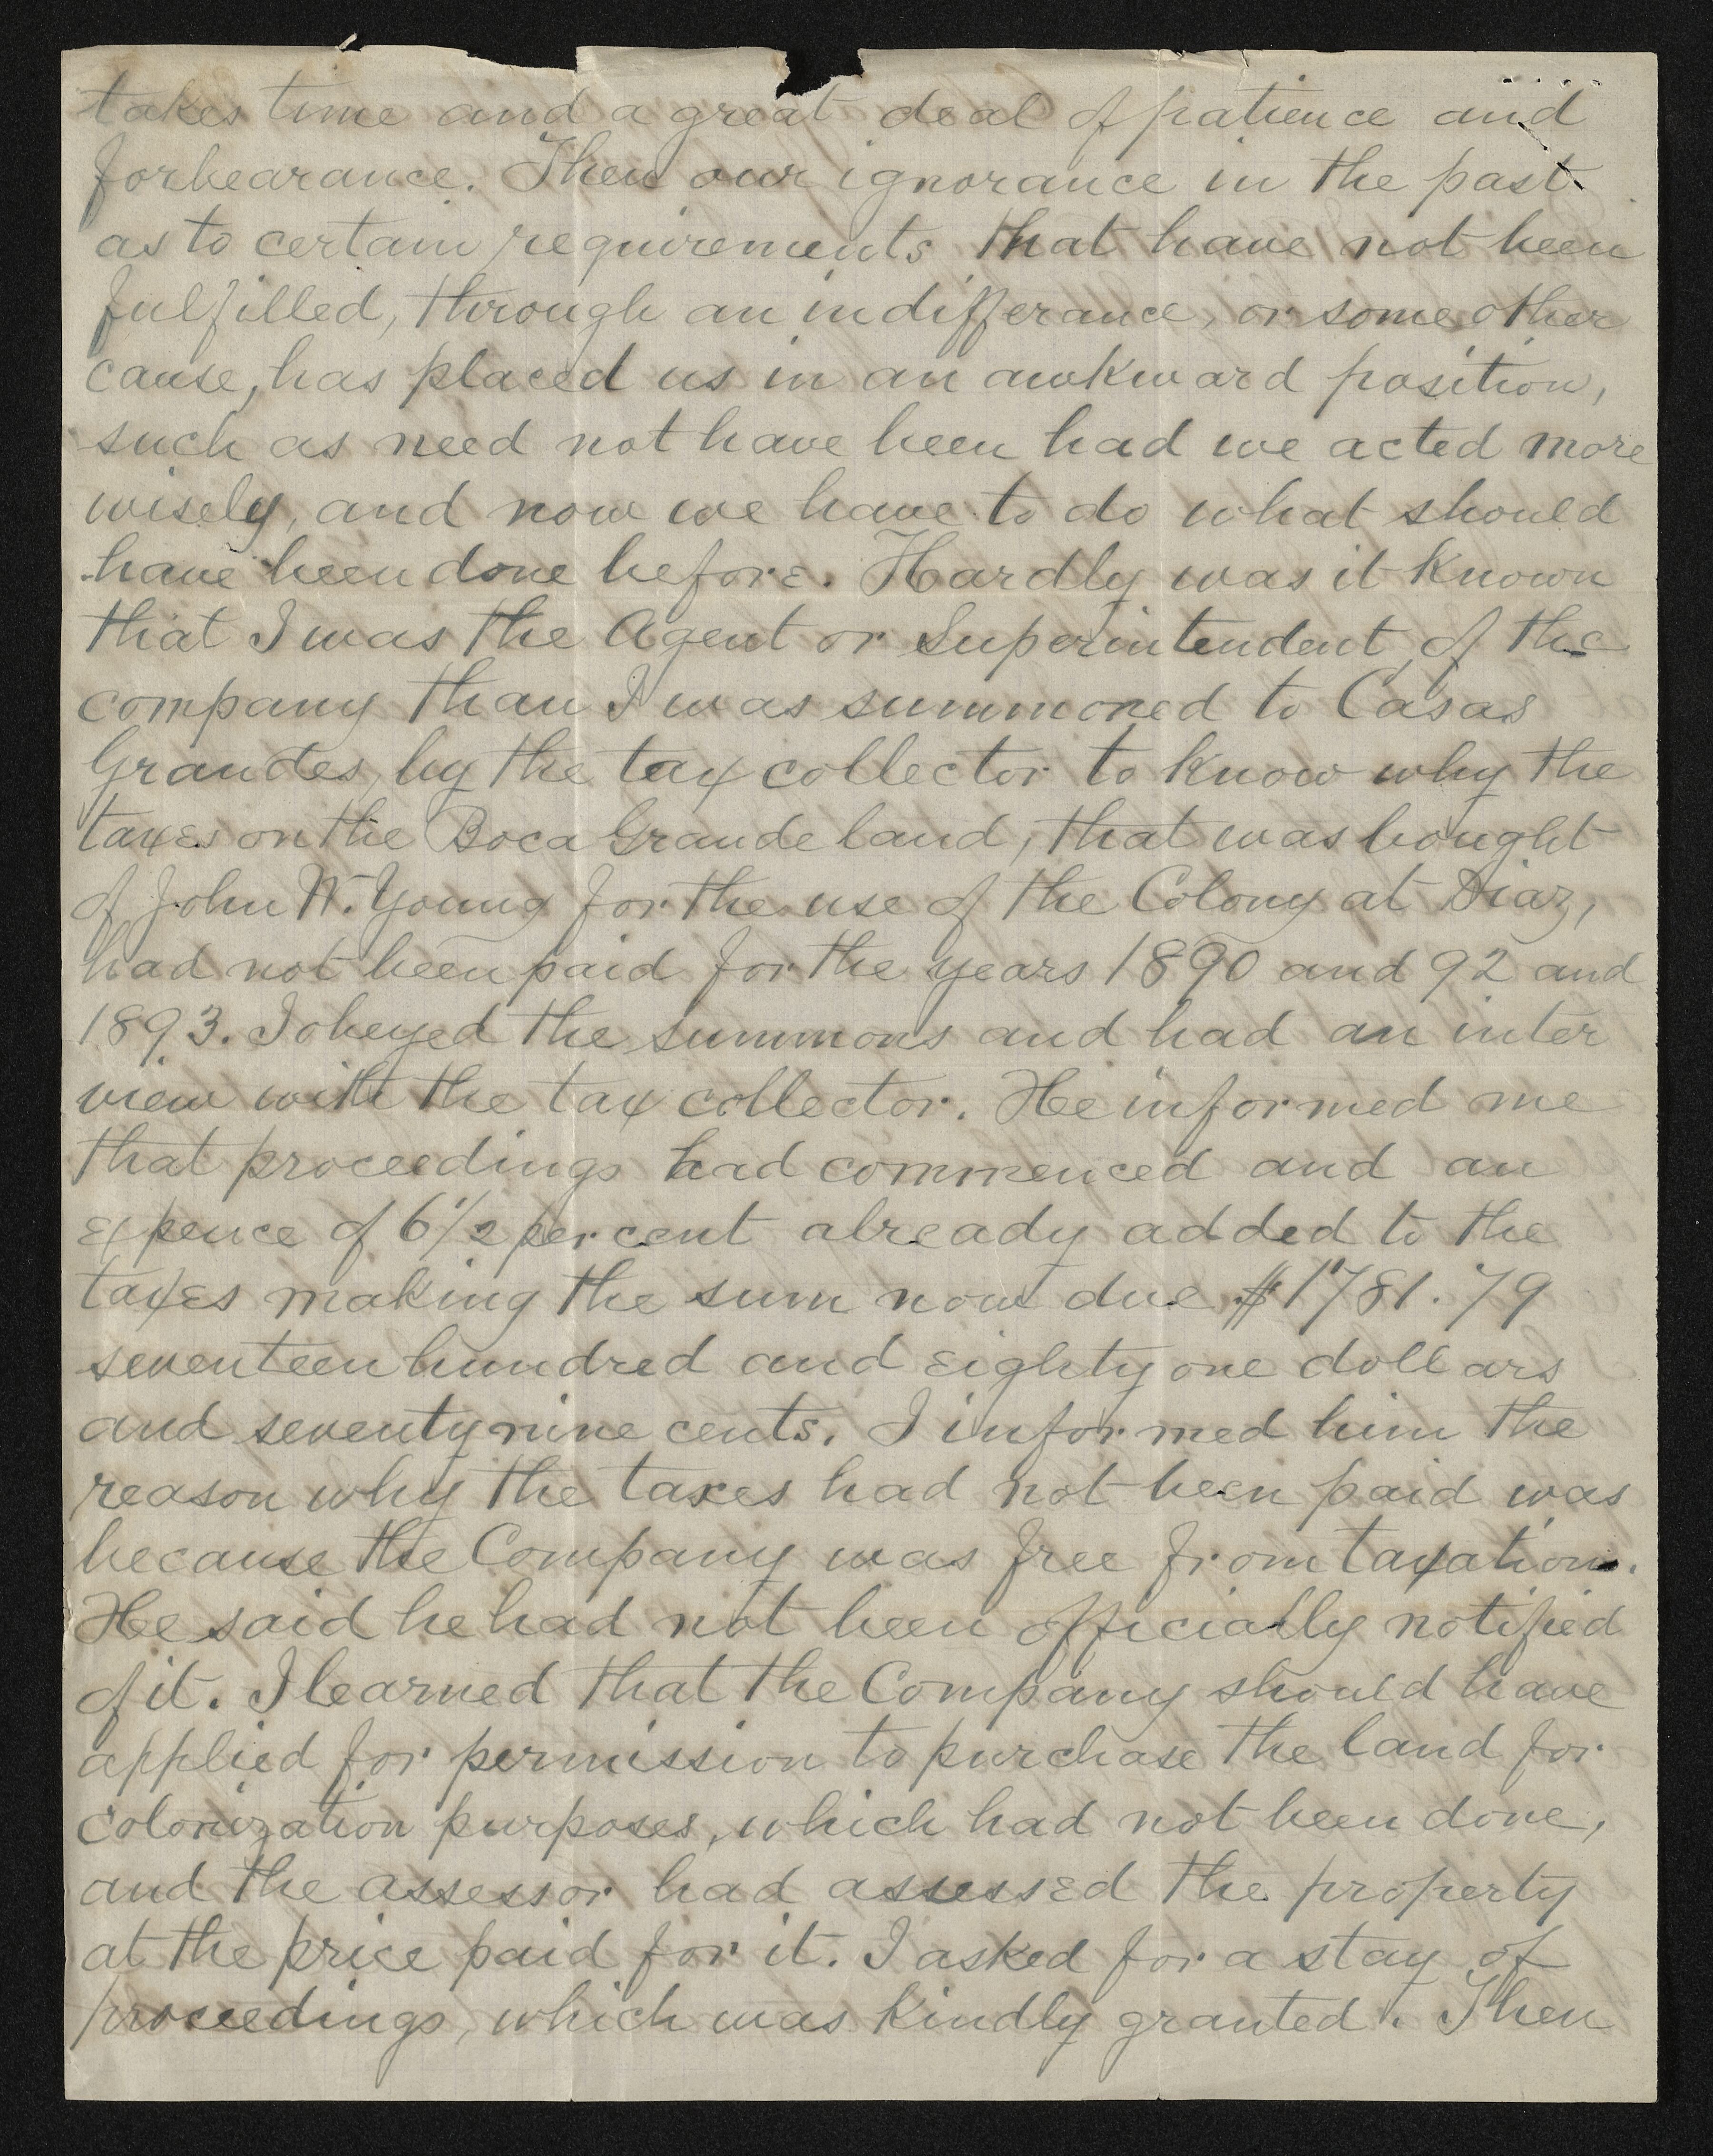 takes time and a great deal of patience and
forbearance. Then our ignorance in the past
as to certain requirements that have not been
fulfilled, through an indifferance, or some other
cause, has placed us in an awkward position,
such as need not have been had we acted more
wisely, and now we have to do what should
have been done before. Hardly was it known
that I was the Agent or Superintendent of the
company than I was summoned to Casas
Grandes, by the tax collector to know why the
taxes on the Boca Grande land, that was bought
of John W. Young for the use of the Colony at Diaz,
had not been paid for the years 1890 and 92 and
1893. I obeyed the summons and had an inter
view with the tax collector. He informed me
that proceedings had commenced and an
expence of 6 1/2 per cent already added to the
taxes making the sum now due $1781.79
seventeen hundred and eighty one dollars
and seventy nine cents. I informed him the
reason why the taxes had not been paid was
because the Company was free from taxation.
He said he had not been officially notified
of it. I learned that the Company should have
applied for permission to purchase the land for
colonization purposes, which had not been done,
and the assessor had assessed the property
at the price paid for it. I asked for a stay of
proceedings, which was kindly granted. Then